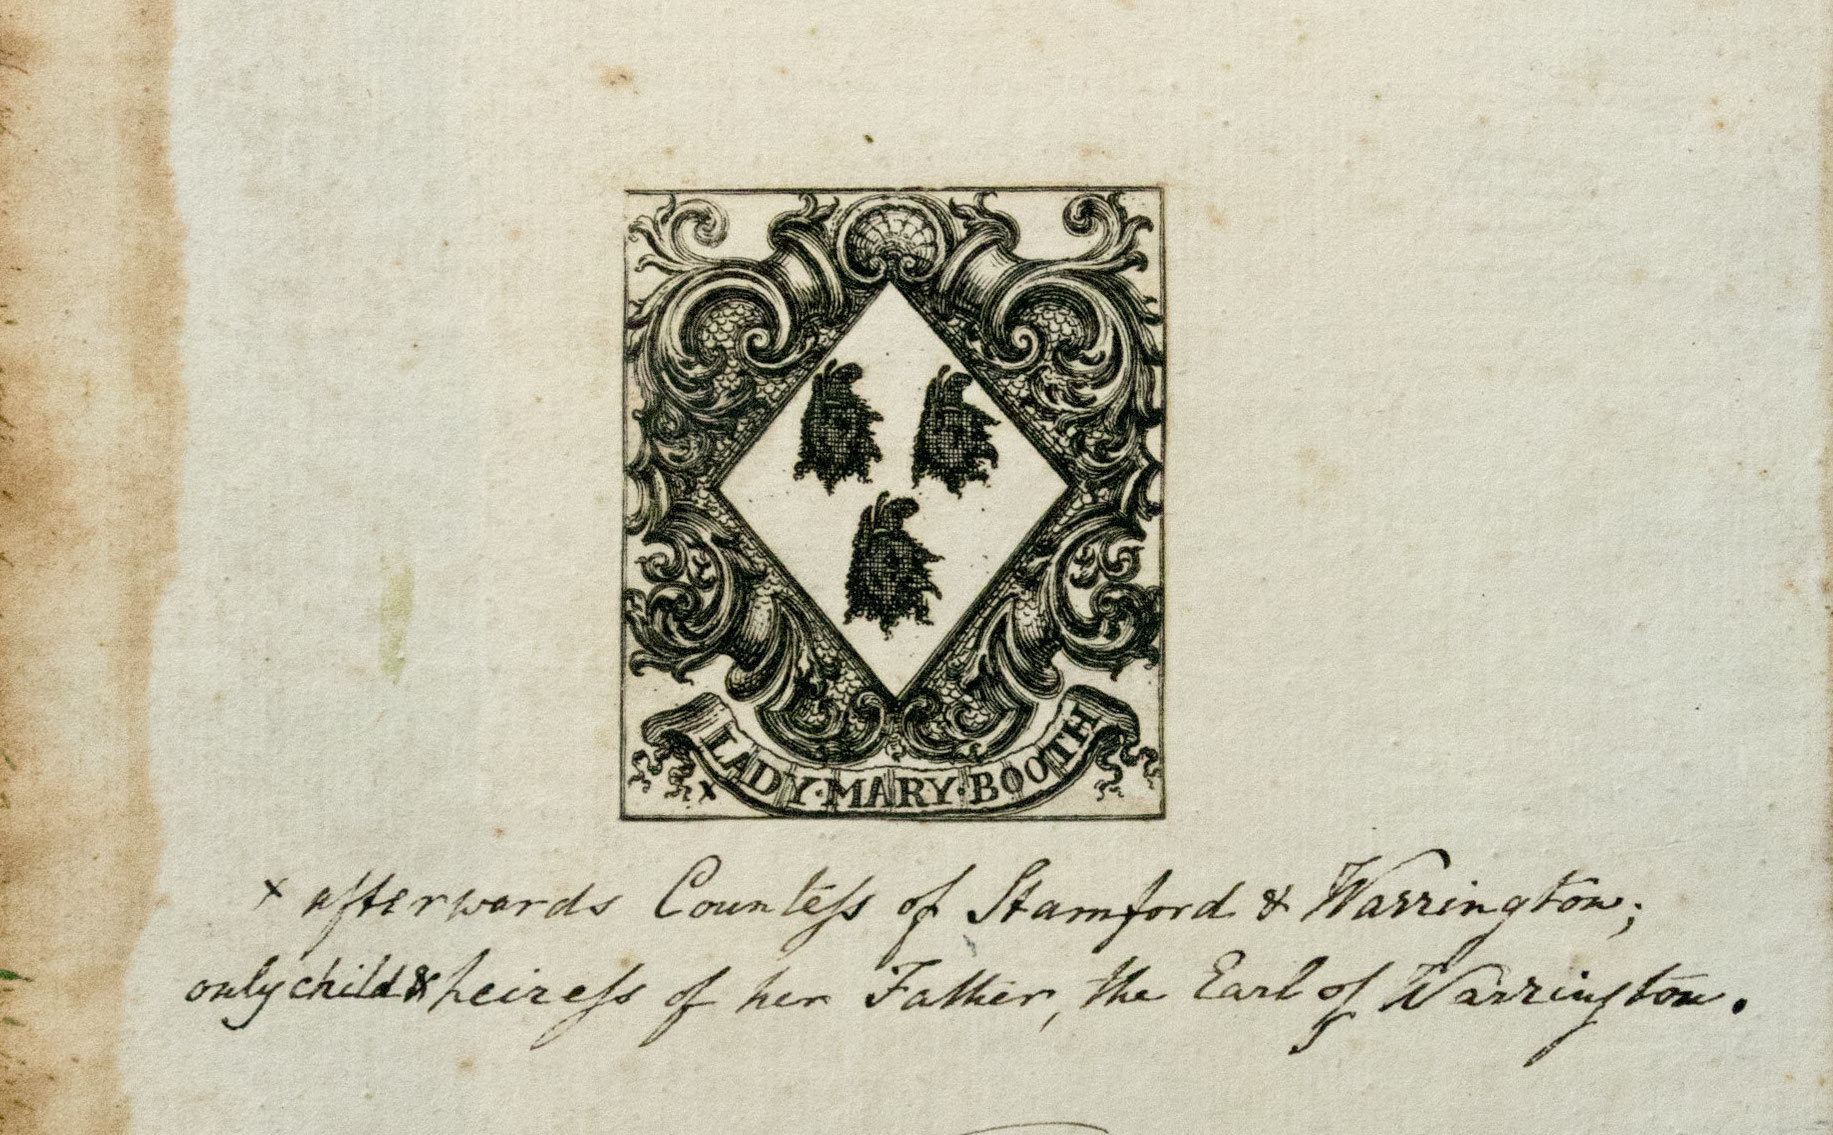 LADY·MARY·BOOTH
x
x afterwards Counteſs of Stamford & Warrington;
only child & heireſs of her Father, the Earl of Warrington.